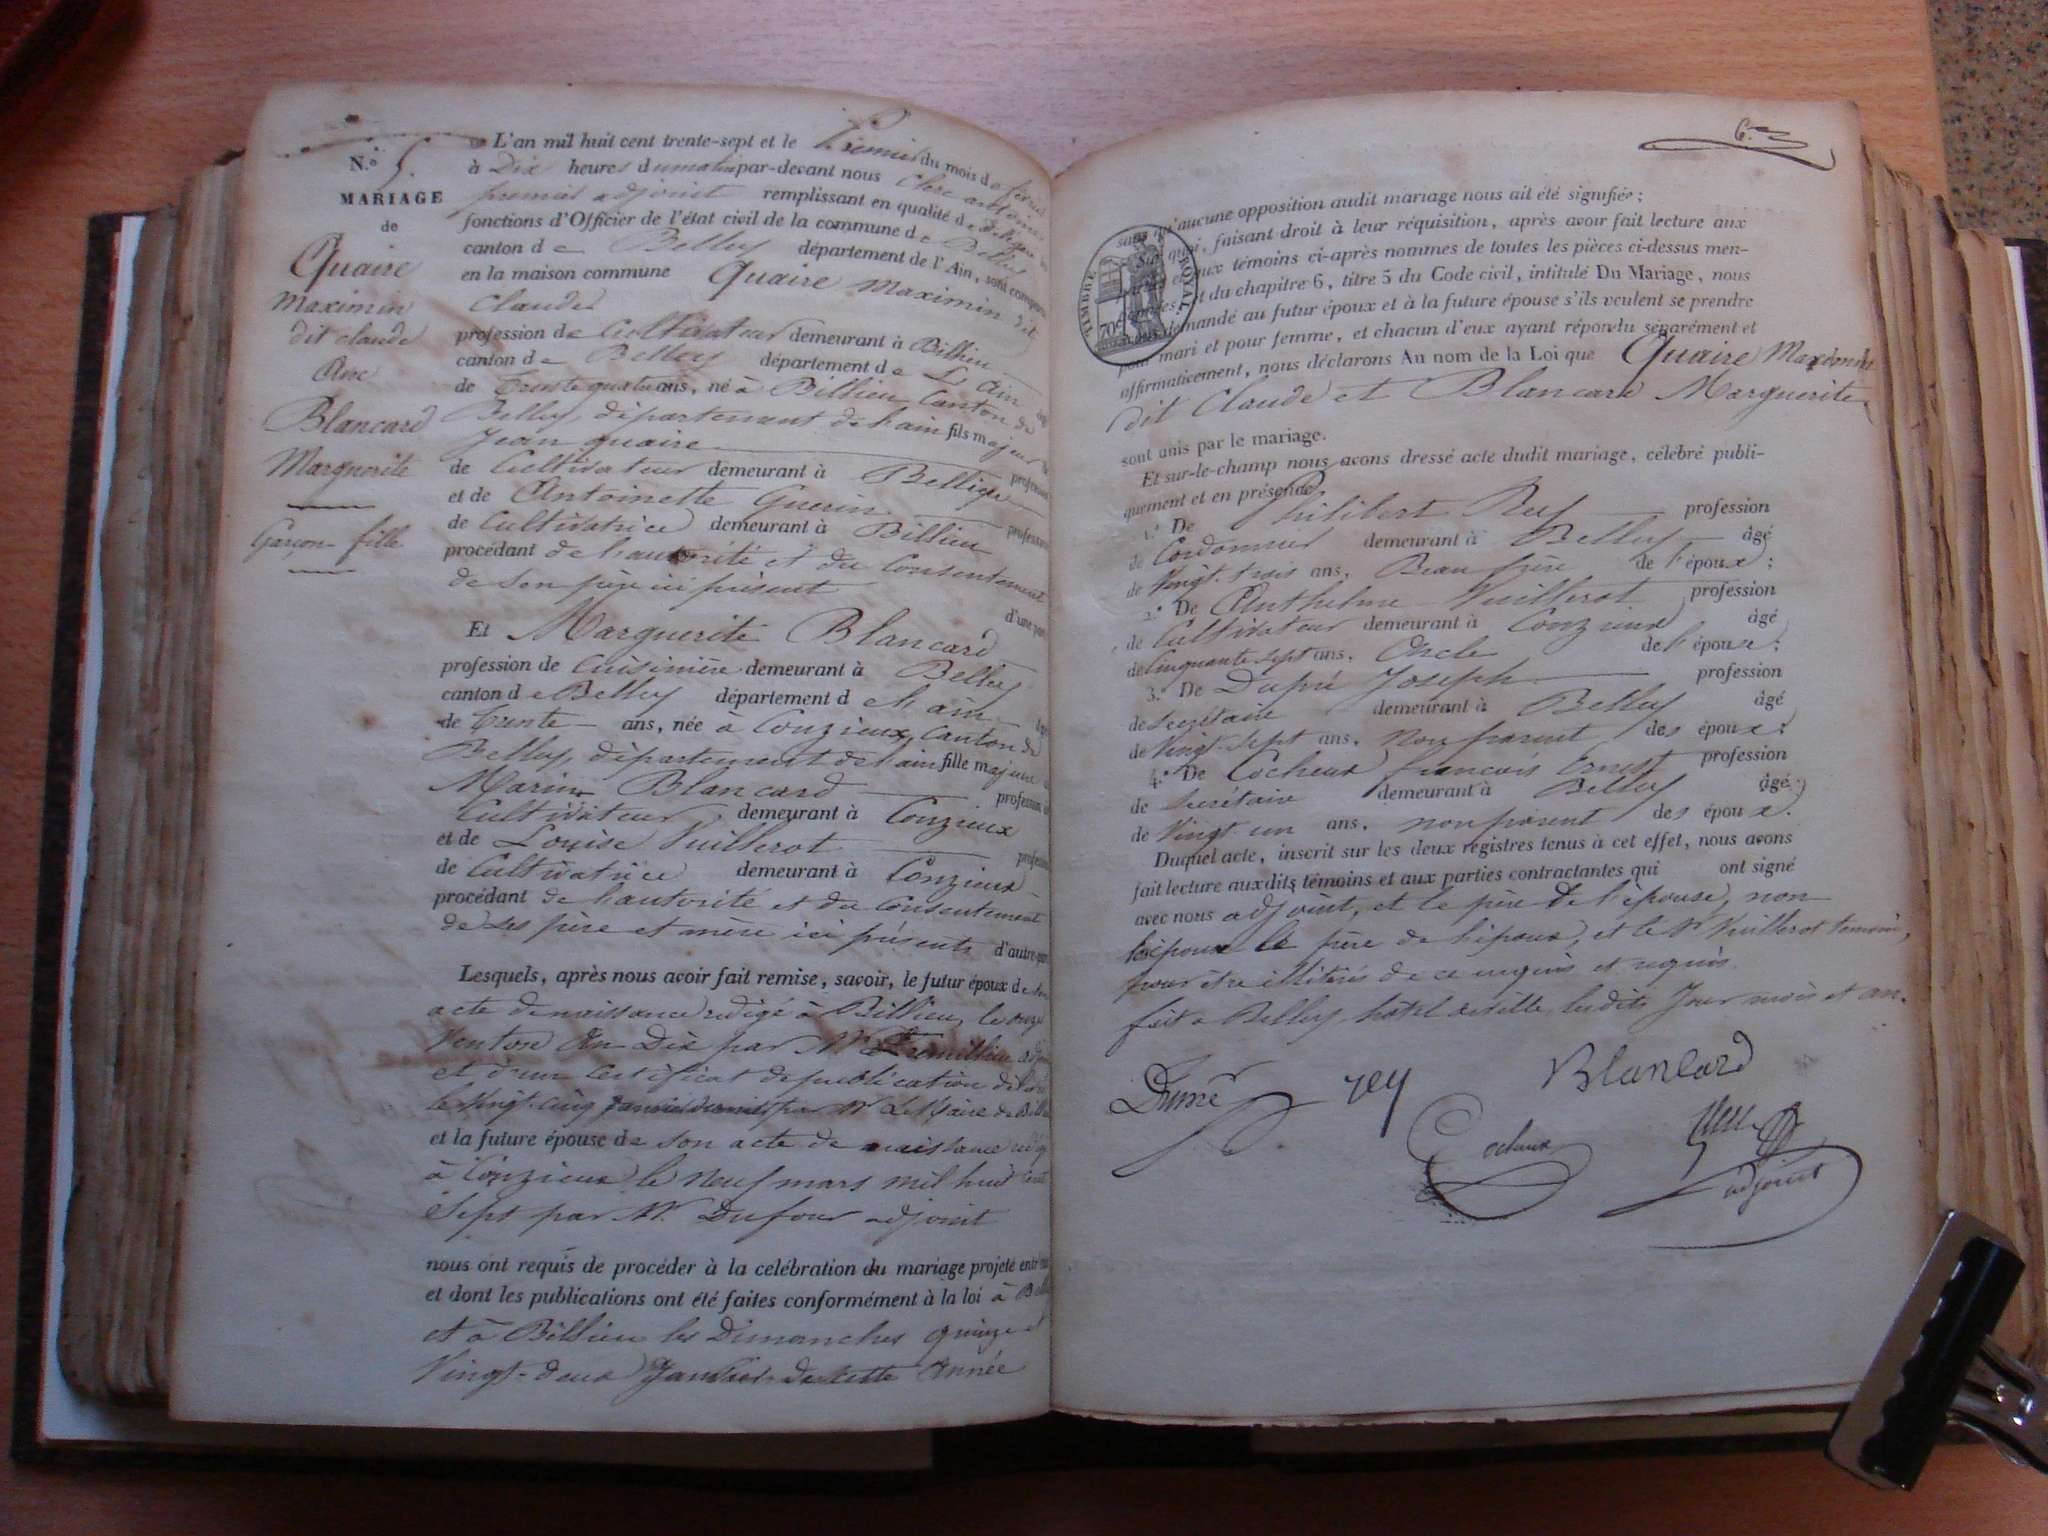 N.º 5.
MARIAGE
de
Quaire
Maximin
dit claude
Avec
Blancard
Marguerite
Garçon fille
L'an mil huit cent trente-sept et le Premier du mois de février
à Dix heures du matin par-devant nous Clerc antoine
premier adjoint remplissant en qualité de
fonctions d'Officier de l'état civil de la commune de Belley
canton de Belley département de l'Ain, sont comparus
en la maison commune Quaire Maximin dit
Claude
profession de Cultivateur demeurant à Billieu
canton de Belley département de L'Ain âgé
de Trente quatre ans, né à Billieu Canton de
Belley, département de hain fils majeur de
Jean quaire profession
de Cultivateur demeurant à Bellieu
et de Antoinette Guerin profession
de Cultivatrice demeurant à Billieu
procédant de hautorité et du Consentement
de son père ici présent
d'une part
Et Marguerite Blancard
profession de Cuisinière demeurant à Belley
canton de Belley département de hain âgé
de Trente ans, née à Conzieux, Canton de
Belley, département de hain fille majeure de
Marin Blancard profession de
Cultivateur demeurant à Conzieux
et de Louise Vuillerot profession
de Cultivatrice demeurant à Conzieux
procédant de hautorité et du Consentement
de ses père et mère ici présents d'autre part
Lesquels, après nous avoir fait remise, savoir, le futur époux de son
acte de naissance redigé à Billieu, le onze
Ventose An Dix par Mr adjoint
et d'un Certificat de publication délivré
le Vingt-cinq Janvier dernier par Mr Le Maire de Billieu
et la future épouse de son acte de naissance redigé
à Conzieux le Neuf mars mil huit cent
Sept par Mr. Dufour adjoint
nous ont requis de procéder à la celébration du mariage projeté entr'eux
et dont les publications ont été faites conformément à la loi à Belley
et à Billieu les Dimanches quinze et
Vingt-deux Janvier de cette Année
6.
TIMBRE ROYAL
70c
sans qu'aucune opposition audit mariage nous ait été signifiée ;
Sur quoi, faisant droit à leur réquisition, après avoir fait lecture aux
parties et aux témoins ci-après nommés de toutes les pièces ci-dessus men-
et du chapitre 6, titre 5 du Code civil, intitulé Du Mariage, nous
avons demandé au futur époux et à la future épouse s'ils veulent se prendre
pour mari et pour femme, et chacun d'eux ayant répondu séparément et
affirmativement, nous déclarons Au nom de la Loi que Quaire Maximin
dit Claude et Blancard Marguerite
sont unis par le mariage.
Et sur-le-champ nous avons dressé acte dudit mariage, célébré publi-
quement et en présence
1.º De Philibert Rey profession
de Cordonnier demeurant à Belley âgé
de Vingt-trois ans, Beau frère de l'époux ;
2.º De Anthelme Vuillerot profession
de Cultivateur demeurant à Conzieux âgé
de Cinquante sept ans, Oncle de l'épouse ;
3.º De Dupré Joseph profession
de Secrétaire demeurant à Belley âgé
de Vingt-sept ans, non parent des époux ;
4.º De Cocheux francois Ernest profession
de Secrétaire demeurant à Belley âgé
de Vingt-un ans, non parent des époux.
Duquel acte, inscrit sur les deux registres tenus à cet effet, nous avons
fait lecture auxdits témoins et aux parties contractantes qui ont signé
avec nous adjoint, et le père de l'épouse, non
l'époux le père de l'époux, et le Sr Vuillerot temoin,
pour être illitérés de ce enquis et requis.
fait à Belley hôtel de ville, lesdits Jour mois et an.
Dupré
rey
Blancard
Cocheux
Clerc
adjoint